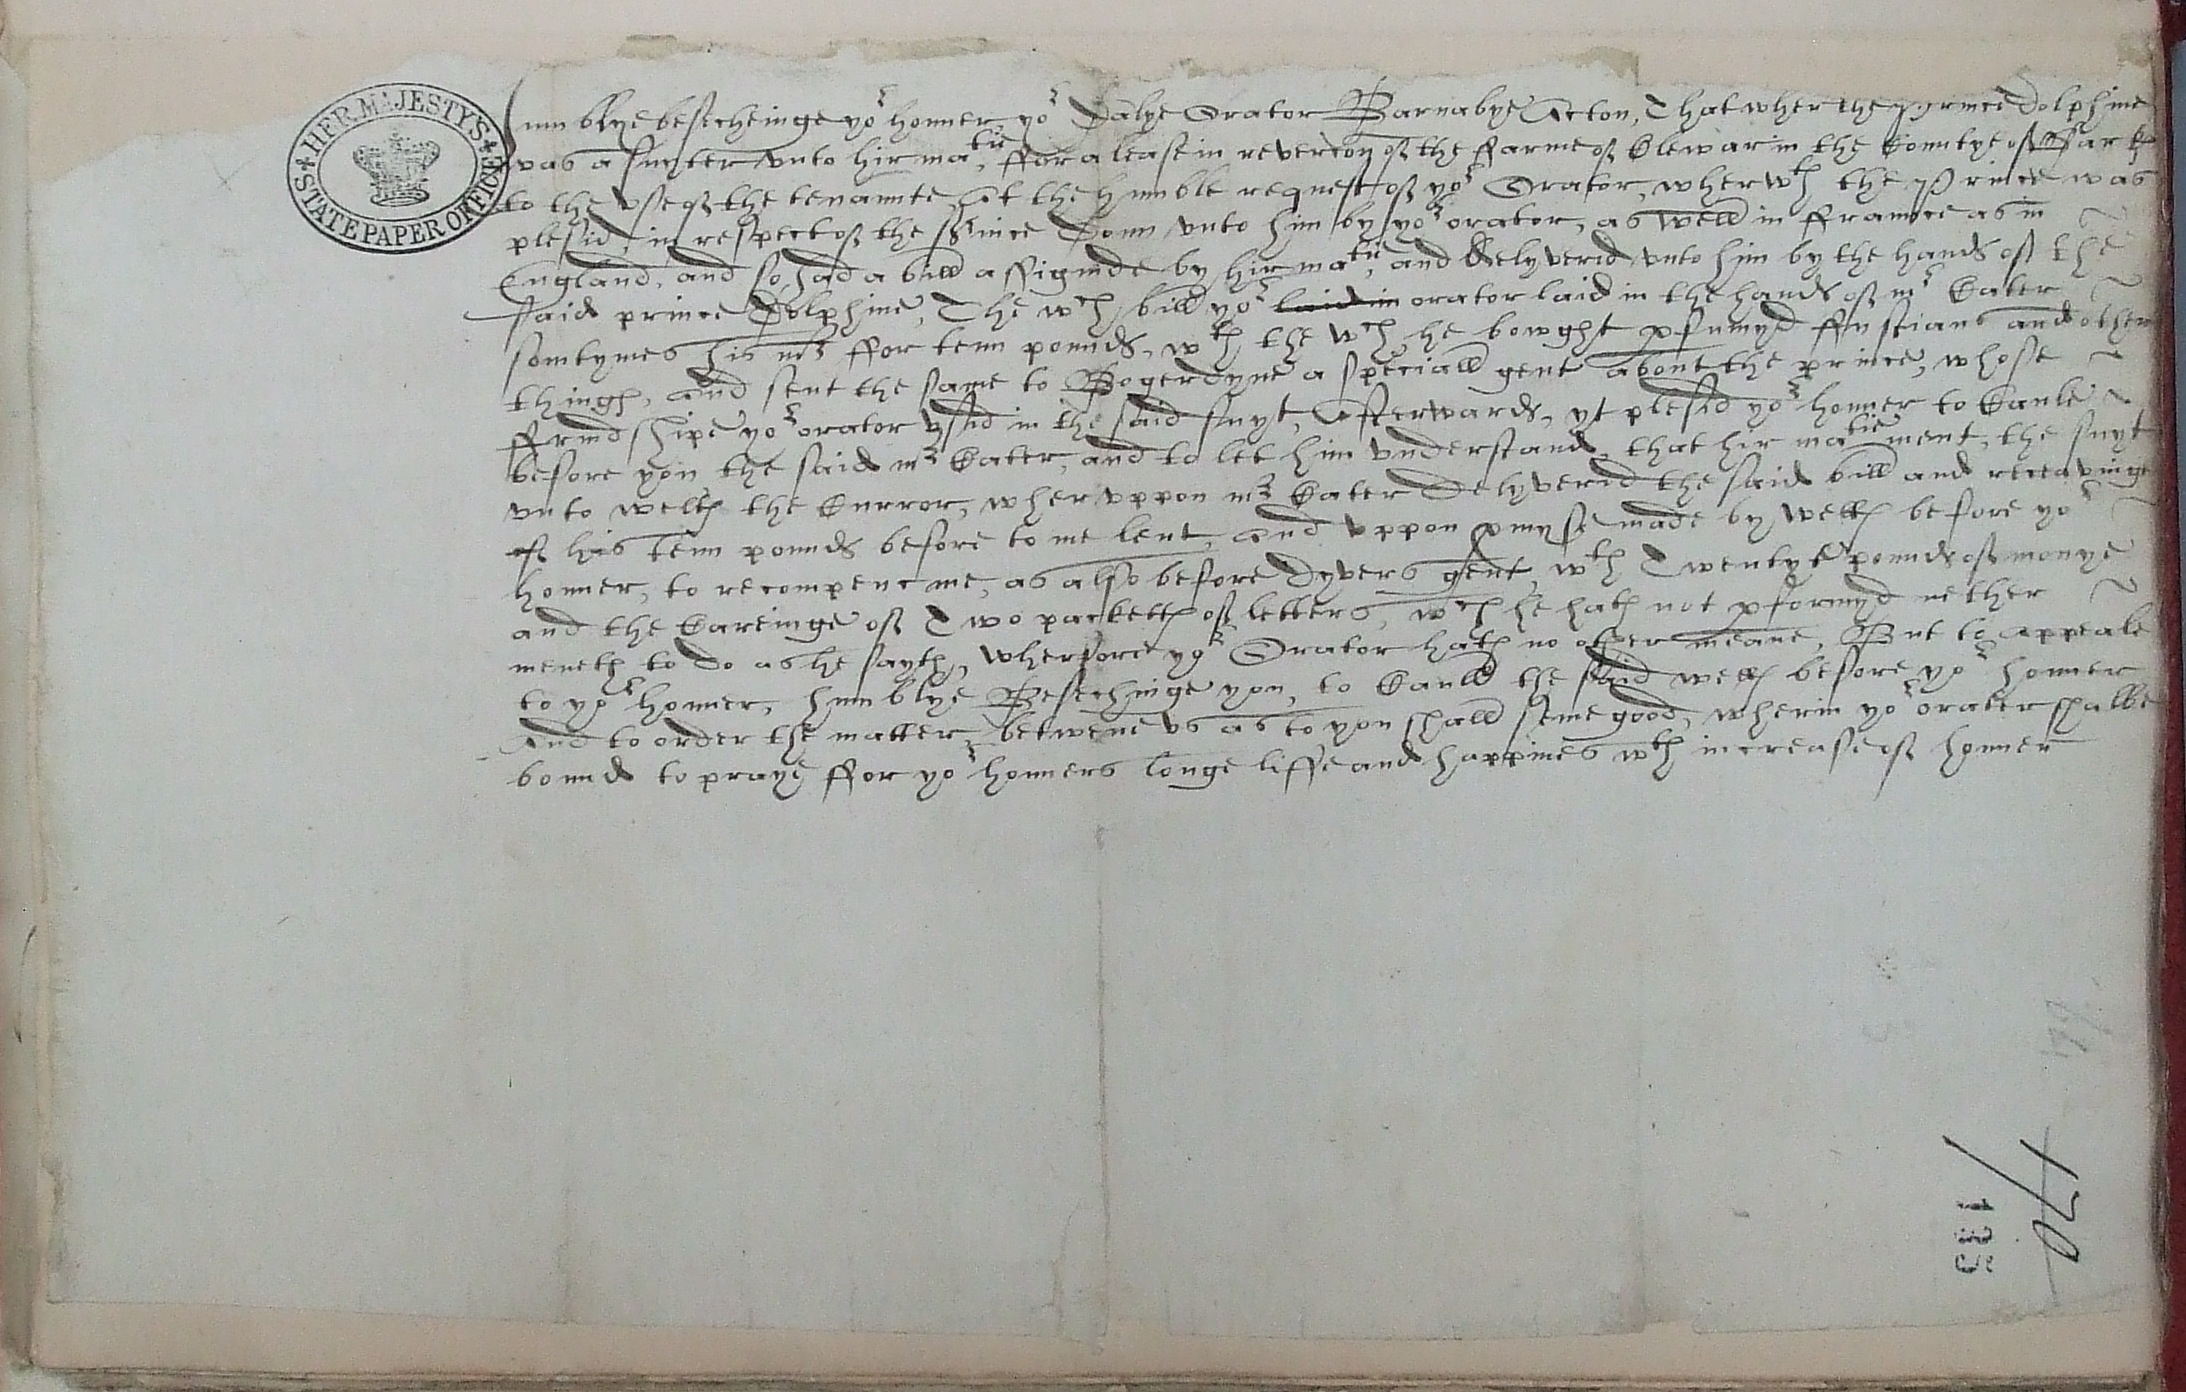 HER MAJESTY'S STATE PAPER OFFICE
Humblye besecheinge yor honner yor Dalye Orator Barnabye Acton, That wher the prince Dolphine
was a suyter unto hir matie, ffor a lease in revercon of the ffarme of Clewar in the Countye of
to the use of the tenannte, at the humble request of yor Orator, wherwth the Prince was
plesid, in respect of the service Donn unto him by yor orator, as well in ffraunce as in
England, and so had a bill assignde by hir matie, and Delyverid unto him by the hands of the
said prince Dolphine, The wch bill yor laid in orator laid in the hands of mr Cater
somtymes his mr ffor tenn pounds, wth the wch he bowght pfumyd ffustians and other
things, and sent the same to Bogerdyne a speciall gent about the prince, whose
ffrindshipe yor orator usid in the said suyt, Afterwards, yt plesid yor honner to Caule
before you the said mr Cater, and to let him understand, that hir matie ment, the suyt
unto wells the Curror, wher uppon mr Cater Delyverid the said bill and receavinge
of his tenn pounds before to me lent, and uppon pmyse made by wells before yor
honner, to recompenc me, as also before Dyvers gent, wth Twentye pounds of monye
and the Careinge of Two packetts of letters, wch he hath not pformyd nether
meneth to do as he sayth, wherfore yor Orator hath no other meane, But to appeale
to yor honner, humblye Besechinge you, to Caull the said wells before yor honner
And to order the matter, betwene us as to you shall seme good, wherin yor orator shalbe
bound to praye ffor yor honners longe liffe and happines wth increase of honner
170
133